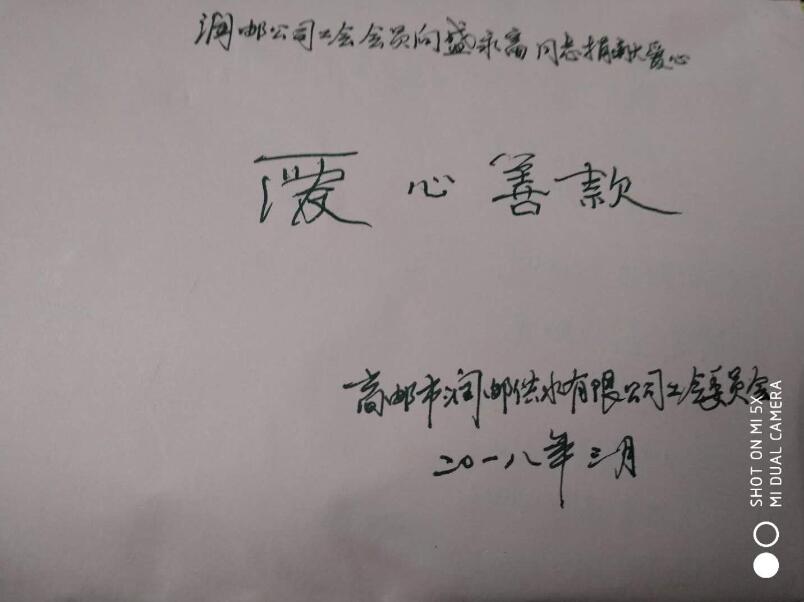 润邮公司工会会员向盛永高同志捐献大爱心
爱心善款
高邮市润邮供水有限公司工会委员会
二〇一八年三月
SHOT ON MI 5X
MI DUAL CAMERA